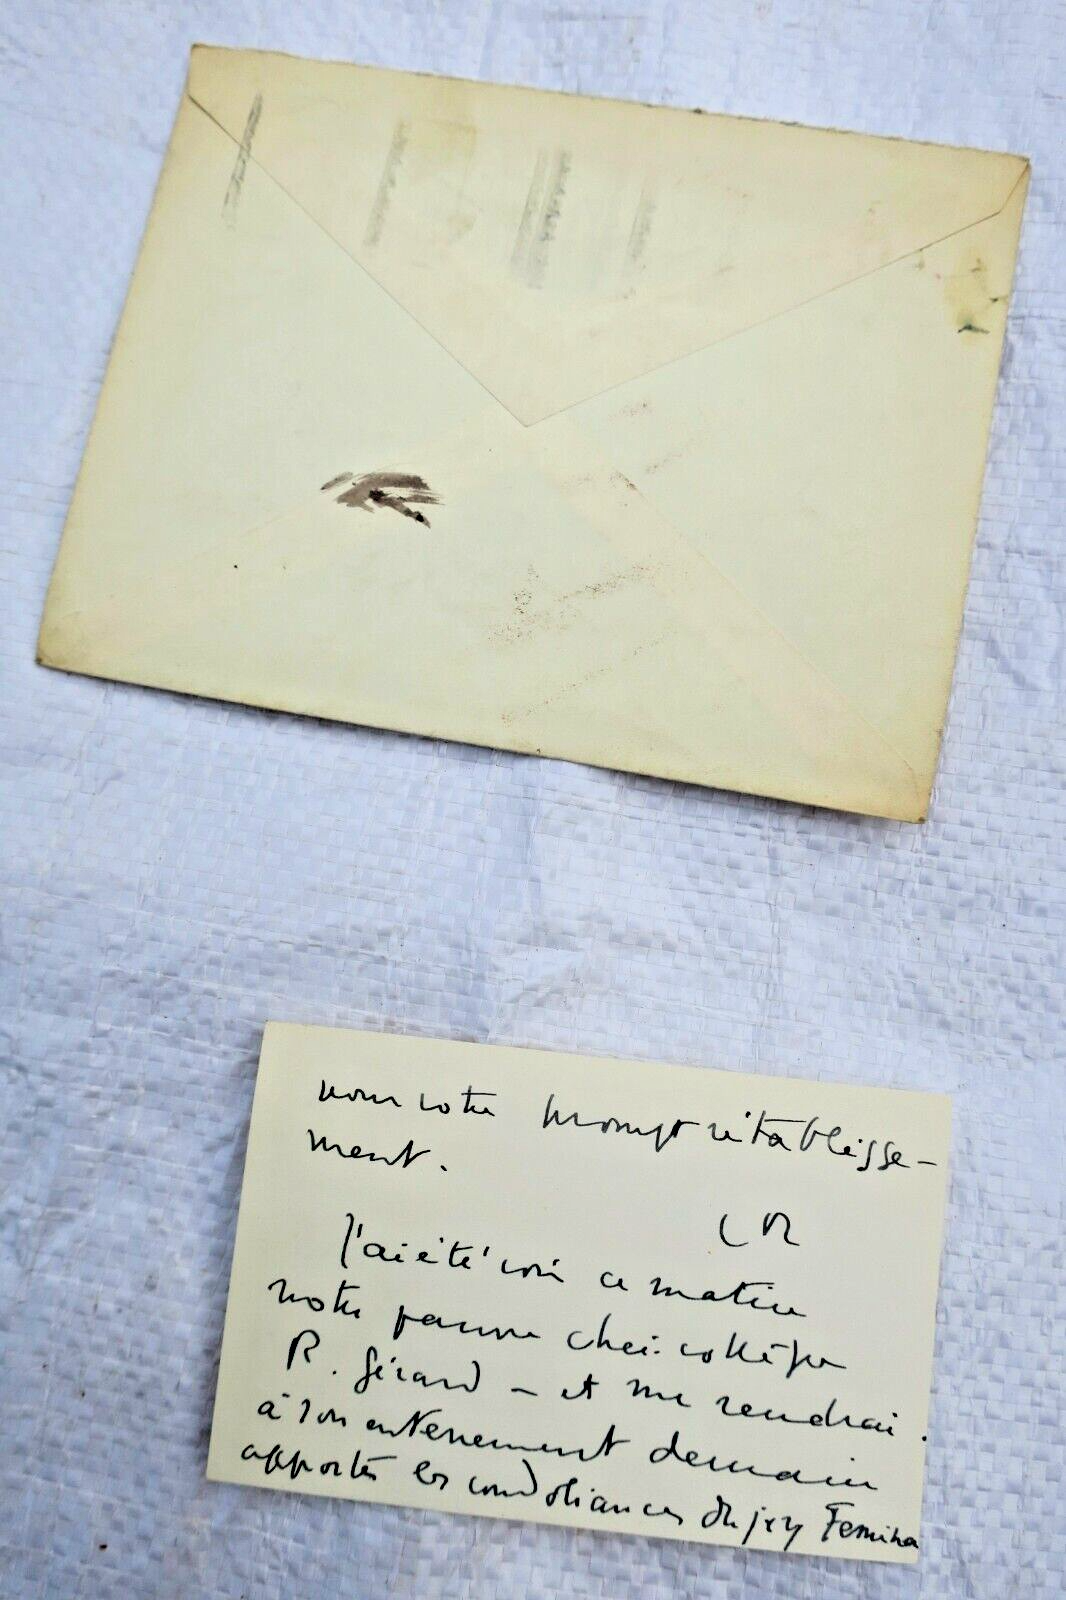 pour votre prompt rétablisse-
ment.
CR
J'ai été voir ce matin
notre pauvre cher collègue
R. Gérard – et me rendrai
à son enterrement demain
apporter les condoléances du jury Femina